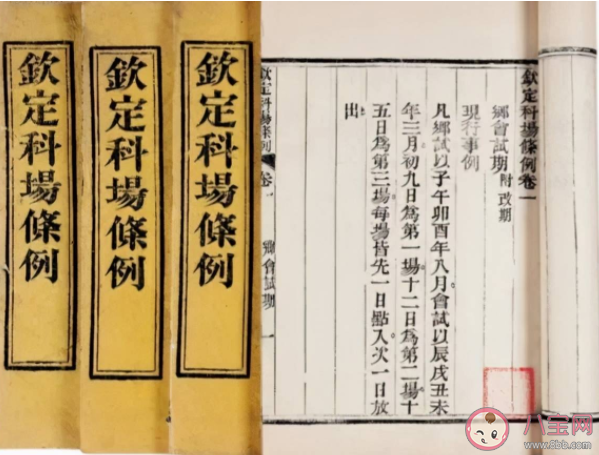 欽定科場條例
欽定科場條例
欽定科場條例
欽定科場條例卷一
鄉會試期 附改期
現行事例
凡鄉試以子午卯酉年八月會試以辰戌丑未
年三月初九日為第一場十二日為第二場十
五日為第三場每場皆先一日點入次一日放
出
欽定科場條例 卷一 鄉會試期 一
八宝网
www.8bb.com